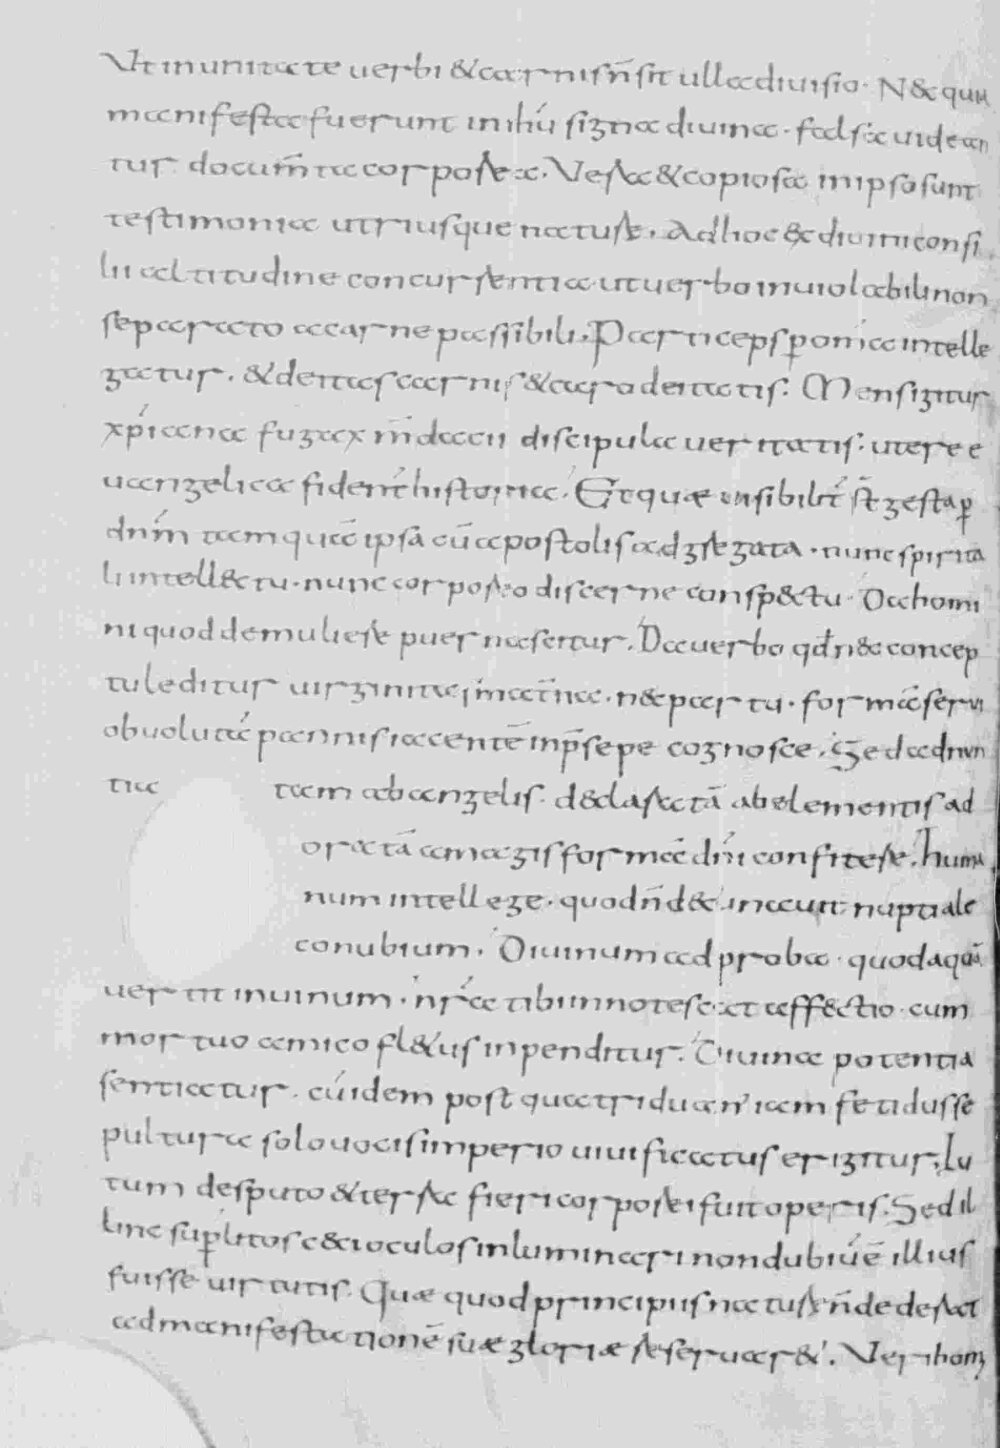 Ut inunitate uerbi &carnis n̄ sit ulla diuisio. N& quia
manifesta fuerunt in ih̄u signa diuina. falsa uidean
tur docum̄ta corporea. Uera &copiosa inipso sunt
testimonia utriusque naturę. Adhoc & diuini consi
lii altitudine concurrentia ut uerbo inuiolabili non
separato acarne passibili. Particeps p̲ om̄ia intelle
gatur. &deitas carnis &caro deitatis. Mens igitur
xp̄iana fugax m̄dacii discipula ueritatis. utere e
uangelica fident̄ historia. Et quæ uisibilit̄ st̄ gesta p̲
dn̄m tamquā ipsa cū apostolis adgregata. nunc spirita
li intell&tu. nunc corporeo discerne consp&tu. Da homi
ni quod demuliere puer nascitur. Da uerbo qd̄ n& concep
tu leditur uirginitas mat̄na. n& partu. formā serui
obuolutā pannis iacentē inp̄sepe cognosce. Sed adnun
tia tam ab angelis. d&laratā abelementis ad
oratā a magis formā dn̄i confitere. huma
num intellege. quod n̄ d&inauit nuptiale
conubium. Diuinum adproba. quod aquā
uertit inuinum. nr̄a tibi innotescat aff&tio. cum
mortuo amico fl&us inpenditur. Diuina potentia
sentiatur. cū idem post quatriduanā iam fetidus se
pultura solo uocis imperio uiuificatus erigitur. Lu
tum desputo &terra fieri corporei fuit operis. Sed il
linc sup̲litos c&ci oculos inluminari nondubiū ē illius
fuisse uirtutis. Quæ quod principiis naturę n̄ dederat
ad manifestationē suæ gloriæ reseruar&. Ueri hom̄